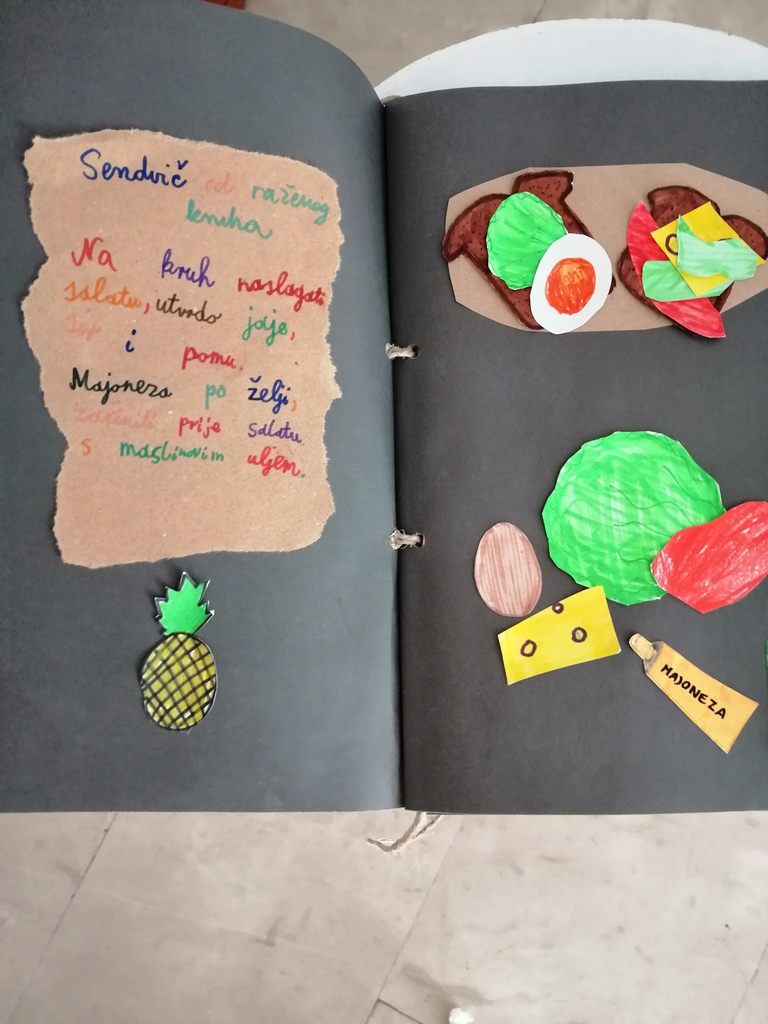 Sendvič od raženog
kruha
Na kruh naslagati
salatu, utvrdo jaje,
sir i pomu.
Majoneza po želji,
začiniti prije salatu
s maslinovim uljem.
MAJONEZA